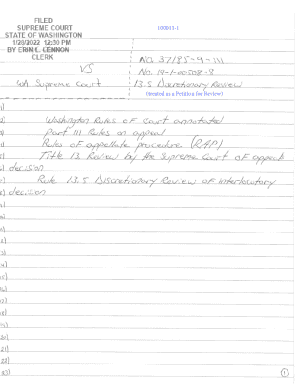 FILED
SUPREME COURT
STATE OF WASHINGTON
1/28/2022 12:30 PM
BY ERIN L. LENNON
CLERK
100613-1
VS
NO. 37185-9-III
WA Supreme Court
13.5 Discretionary Review
(treated as a Petition for Review)
1)
Washington Rules of Court annotated
Part III Rules on appeal
Rules of appellate procedure (RAP)
Title 13 Review by the Supreme Court of appeals
decision
Rule 13.5 Discretionary Review of interlocutory
decision
9)
10)
11)
12)
13)
14)
15)
16)
17)
18)
19)
20)
21)
22)
23)
1